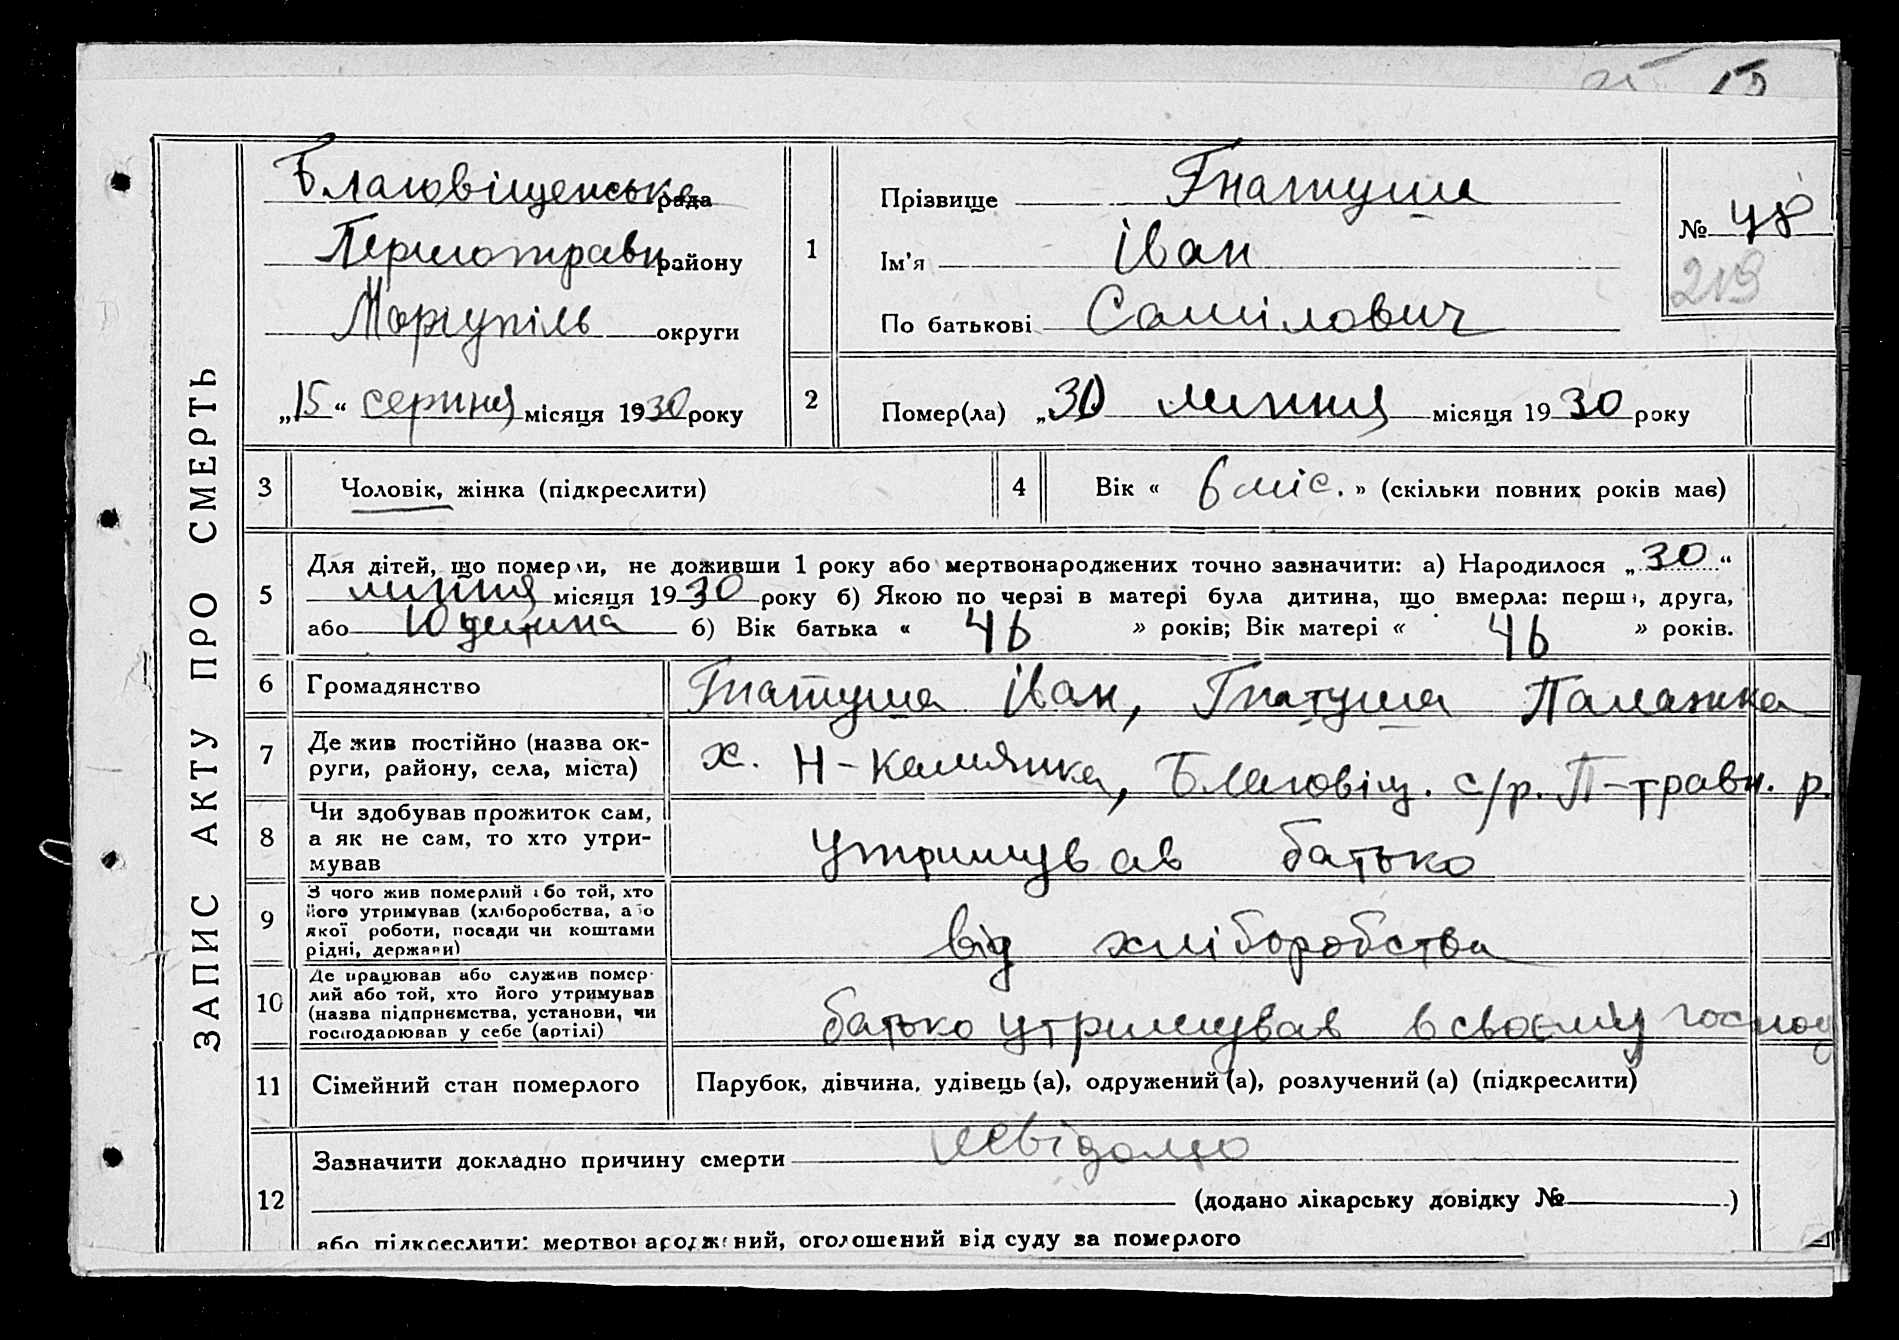 15
ЗАПИС АКТУ ПРО СМЕРТЬ
Благовіщенська рада
Першотравн. району
Маріупіль округи
„15“ серпня місяця 1930 року
1
Прізвище Гнатуша
Ім'я Іван
По батькові Самілович
№ 48
219
2
Помер(ла) „30 липня місяця 1930 року
3
Чоловік, жінка (підкреслити)
4
Вік « 6 міс. » (скільки повних років має)
5
Для дітей, що померли, не доживши 1 року або мертвонароджених точно зазначити: а) Народилося „30“
липня місяця 1930 року б) Якою по черзі в матері була дитина, що вмерла: перша, друга,
або 10 дитина б) Вік батька « 46 » років; Вік матері « 46 » років.
6
Громадянство
Гнатуша Іван, Гнатуша Палажка
7
Де жив постійно (назва ок-
руги, району, села, міста)
х. Н-Камянка, Благовіщ. с/р. П-травн. р.
8
Чи здобував прожиток сам,
а як не сам, то хто утри-
мував
утримував батько
9
З чого жив померлий або той, хто
його утримував (хліборобства, або
якої роботи, посади чи коштами
рідні, держави)
від хліборобства
10
Де працював або служив помер-
лий або той, хто його утримував
(назва підприємства, установи, чи
господарював у себе (артілі)
батько утримував в своєму господ
11
Сімейний стан померлого
Парубок, дівчина, удівець (а), одружений (а), розлучений (а) (підкреслити)
12
Зазначити докладно причину смерти невідомо
(додано лікарську довідку № )
або підкреслити: мертвонароджений, оголошений від суду за померлого